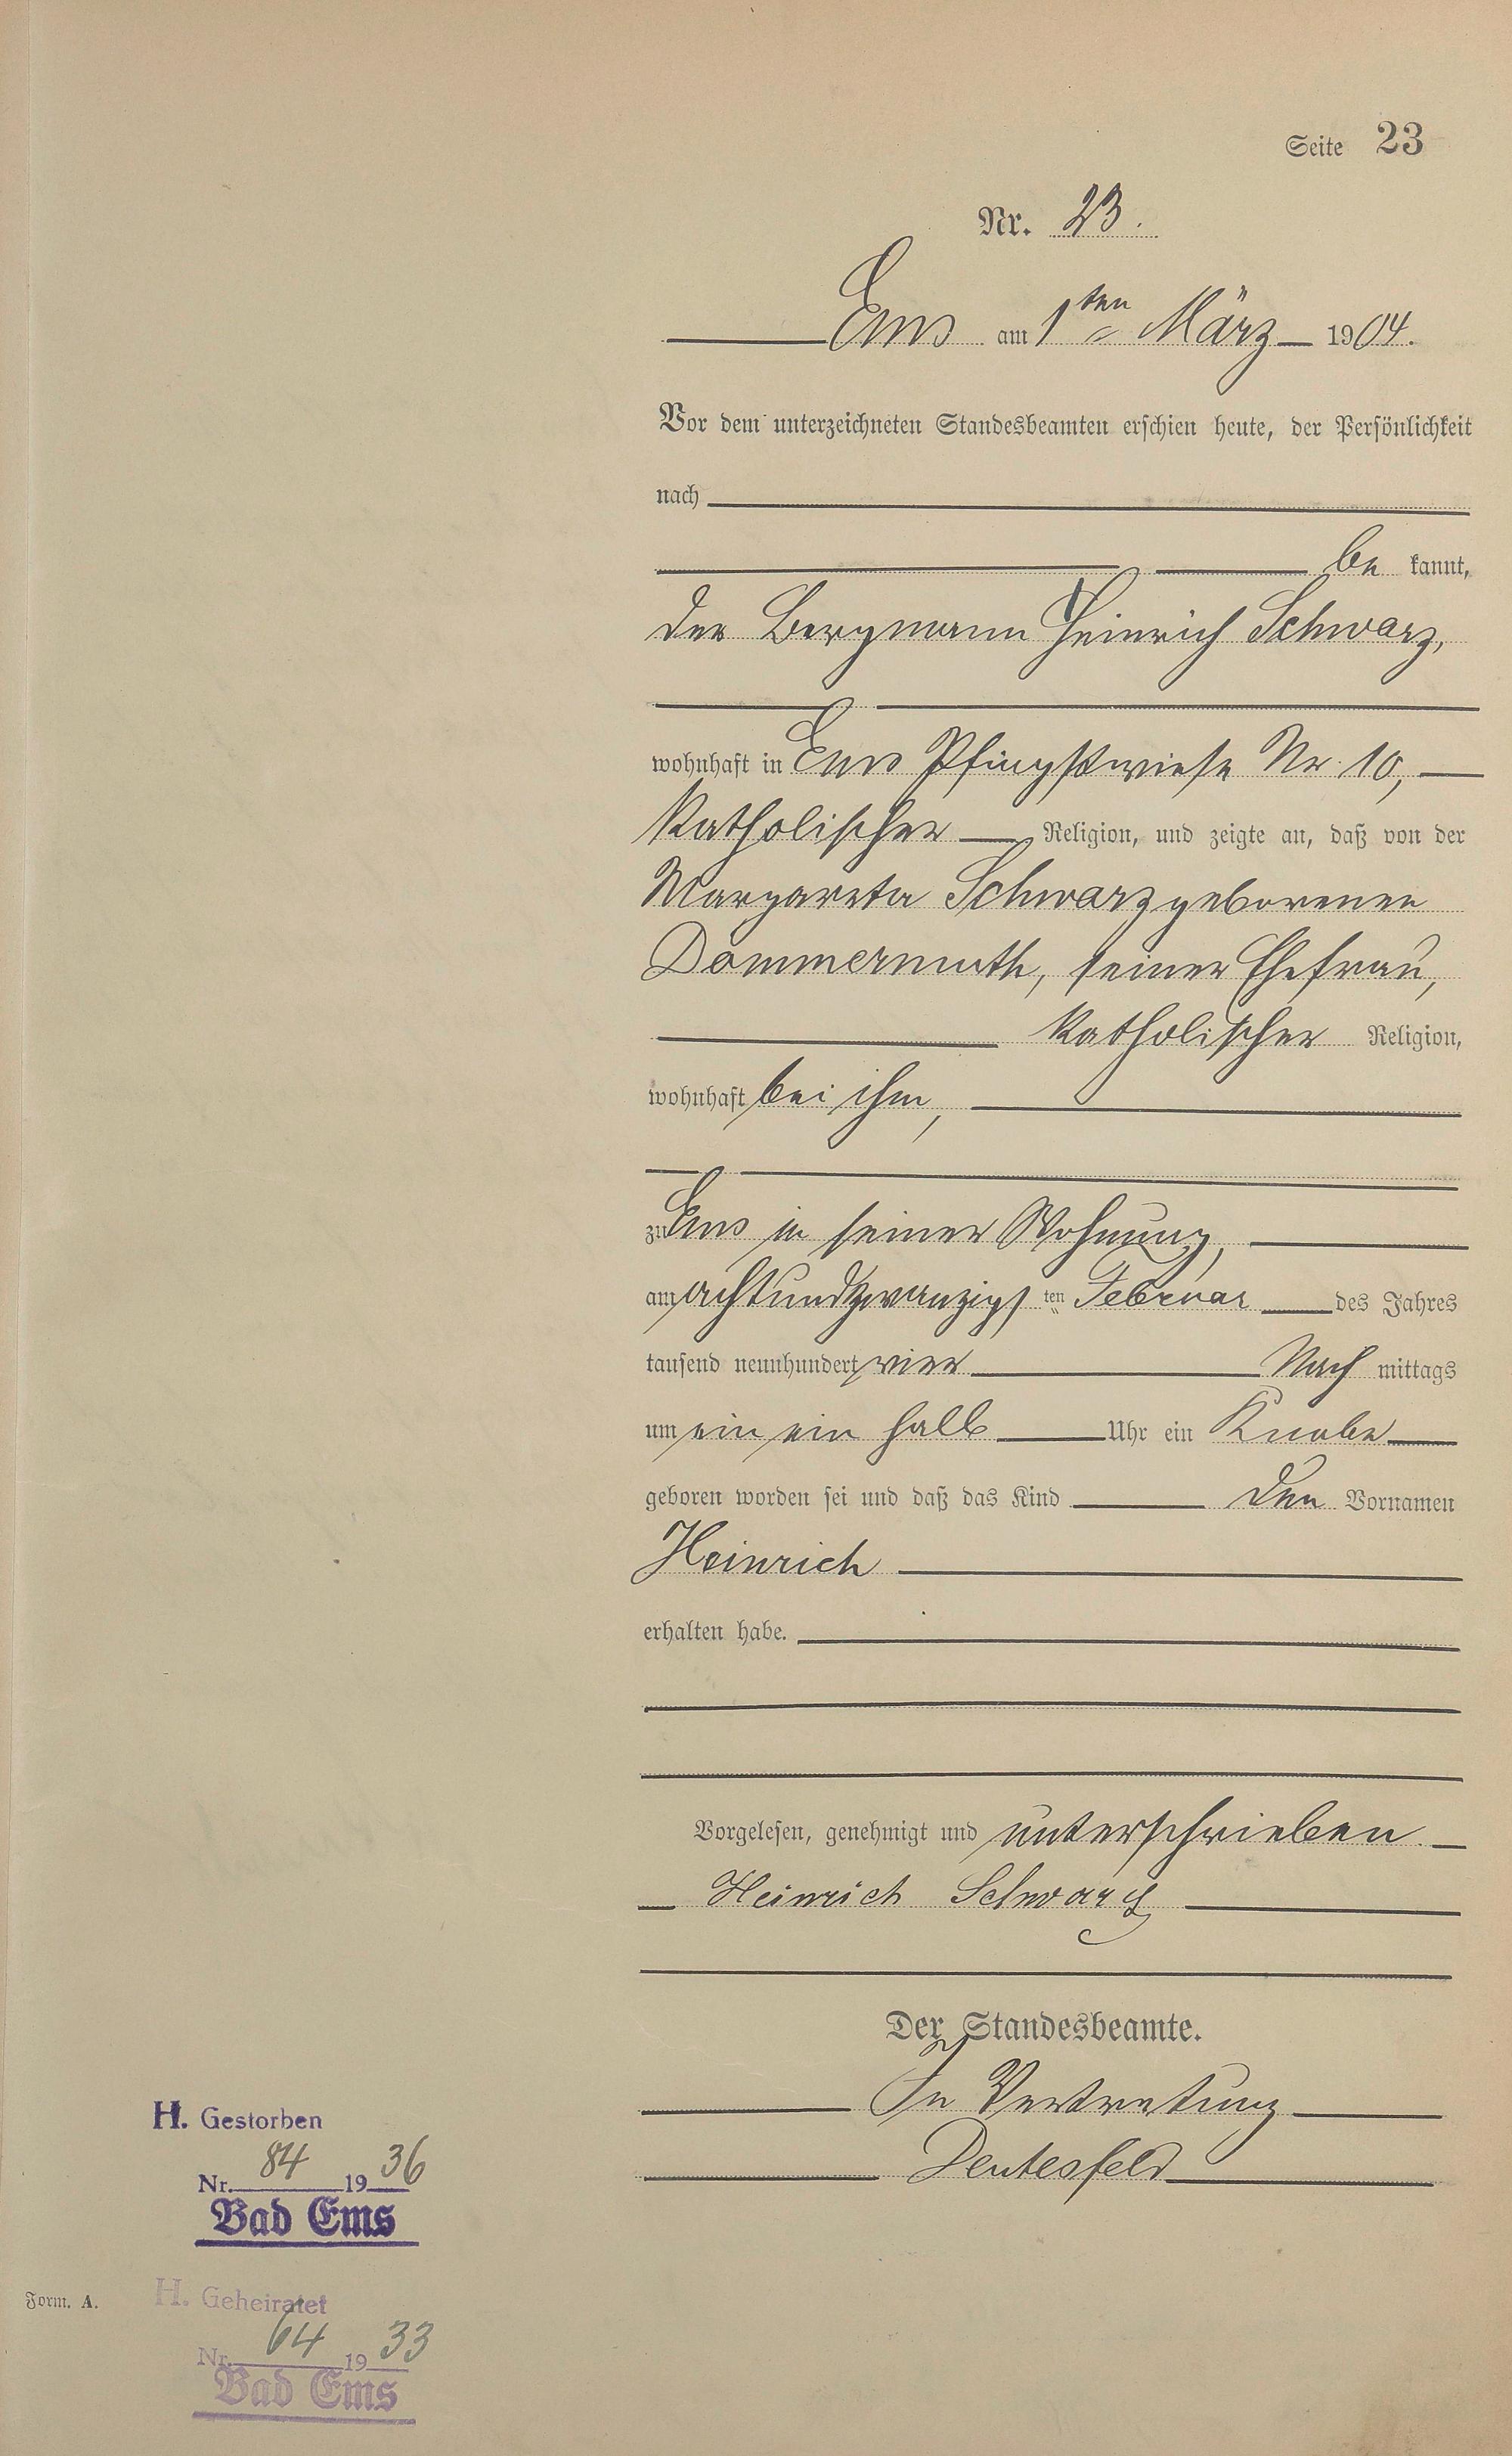 Seite 23
Nr. 23.
Ems am 1ten März 1904.
Vor dem unterzeichneten Standesbeamten erschien heute, der Persönlichkeit
nach
be kannt,
der Bergmann Heinrich Schwarz,
wohnhaft in Ems Pfingstwiese Nr. 10,
katholischer Religion, und zeigte an, daß von der
Margareta Schwarz geborenen
Dommermuth, seiner Ehefrau,
katholischer Religion,
wohnhaft bei ihm,
zu Ems in seiner Wohnung,
am achtundzwanzigs ten Februar des Jahres
tausend neunhundert vier Nach mittags
um ein ein halb Uhr ein Knabe
geboren worden sei und daß das Kind den Vornamen
Heinrich
erhalten habe.
Vorgelesen, genehmigt und unterschrieben
Heinrich Schwarz
Der Standesbeamte.
In Vertretung
Deutesfeld
H. Gestorben
Nr. 84 1936
Bad Ems
Form. A.
H. Geheiratet
Nr. 64 1933
Bad Ems